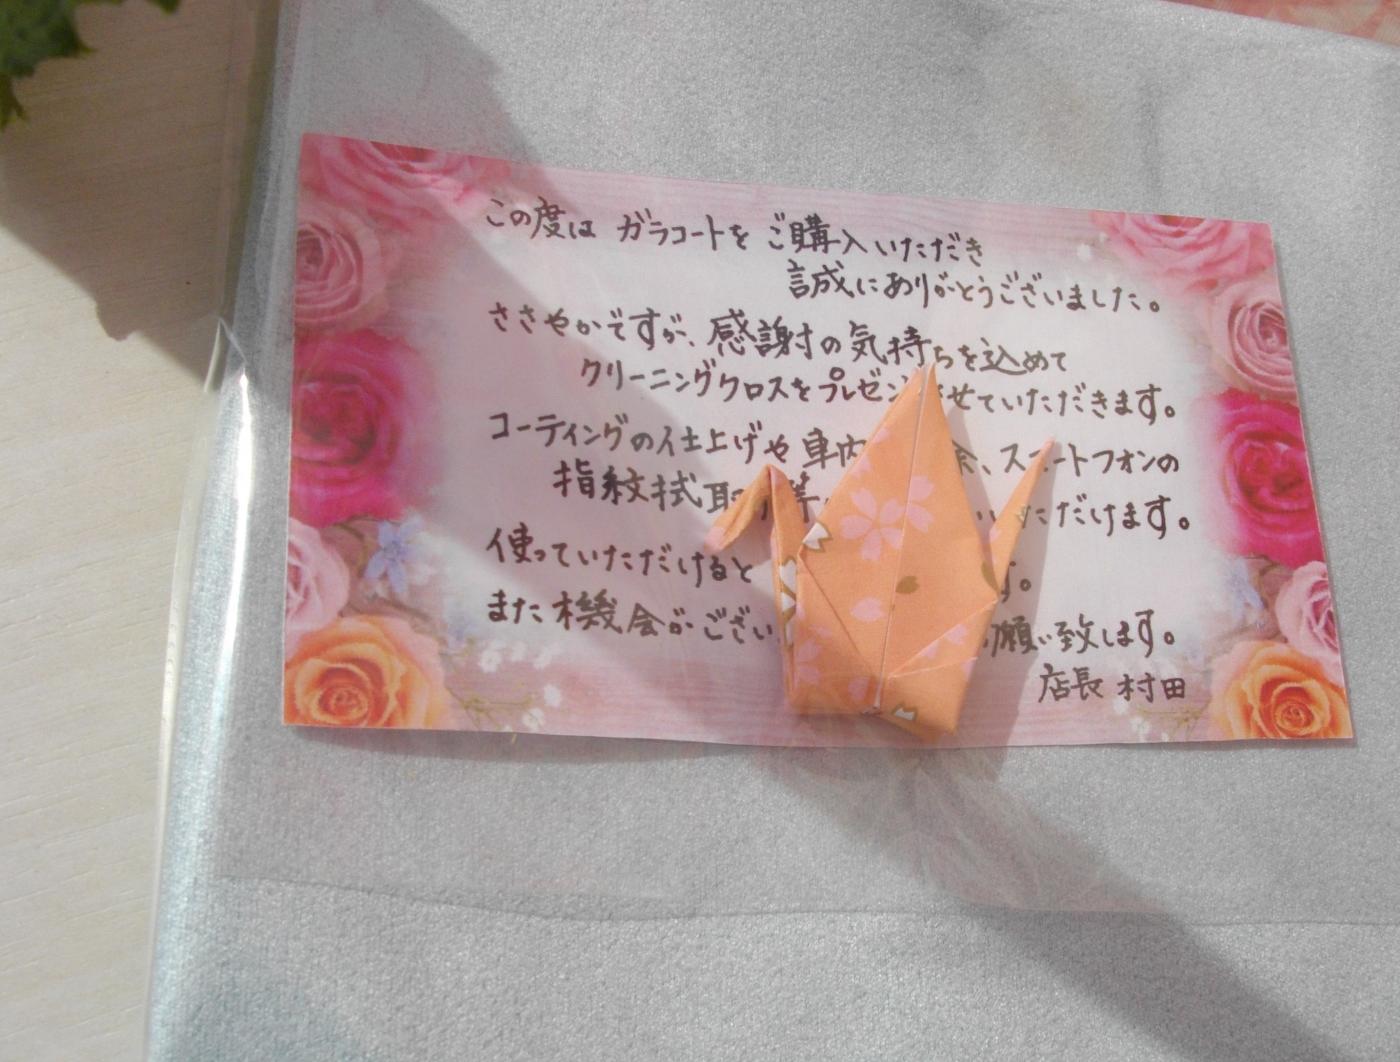 この度は ガラコートを ご購入いただき
誠にありがとうございました。
ささやかですが、感謝の気持ちを込めて
クリーニングクロスをプレゼン させていただきます。
コーティングの仕上げや 車内 、スマートフォンの
指紋拭取り等 いただけます。
使っていただけると す。
また機会がござい お願い致します。
店長 村田